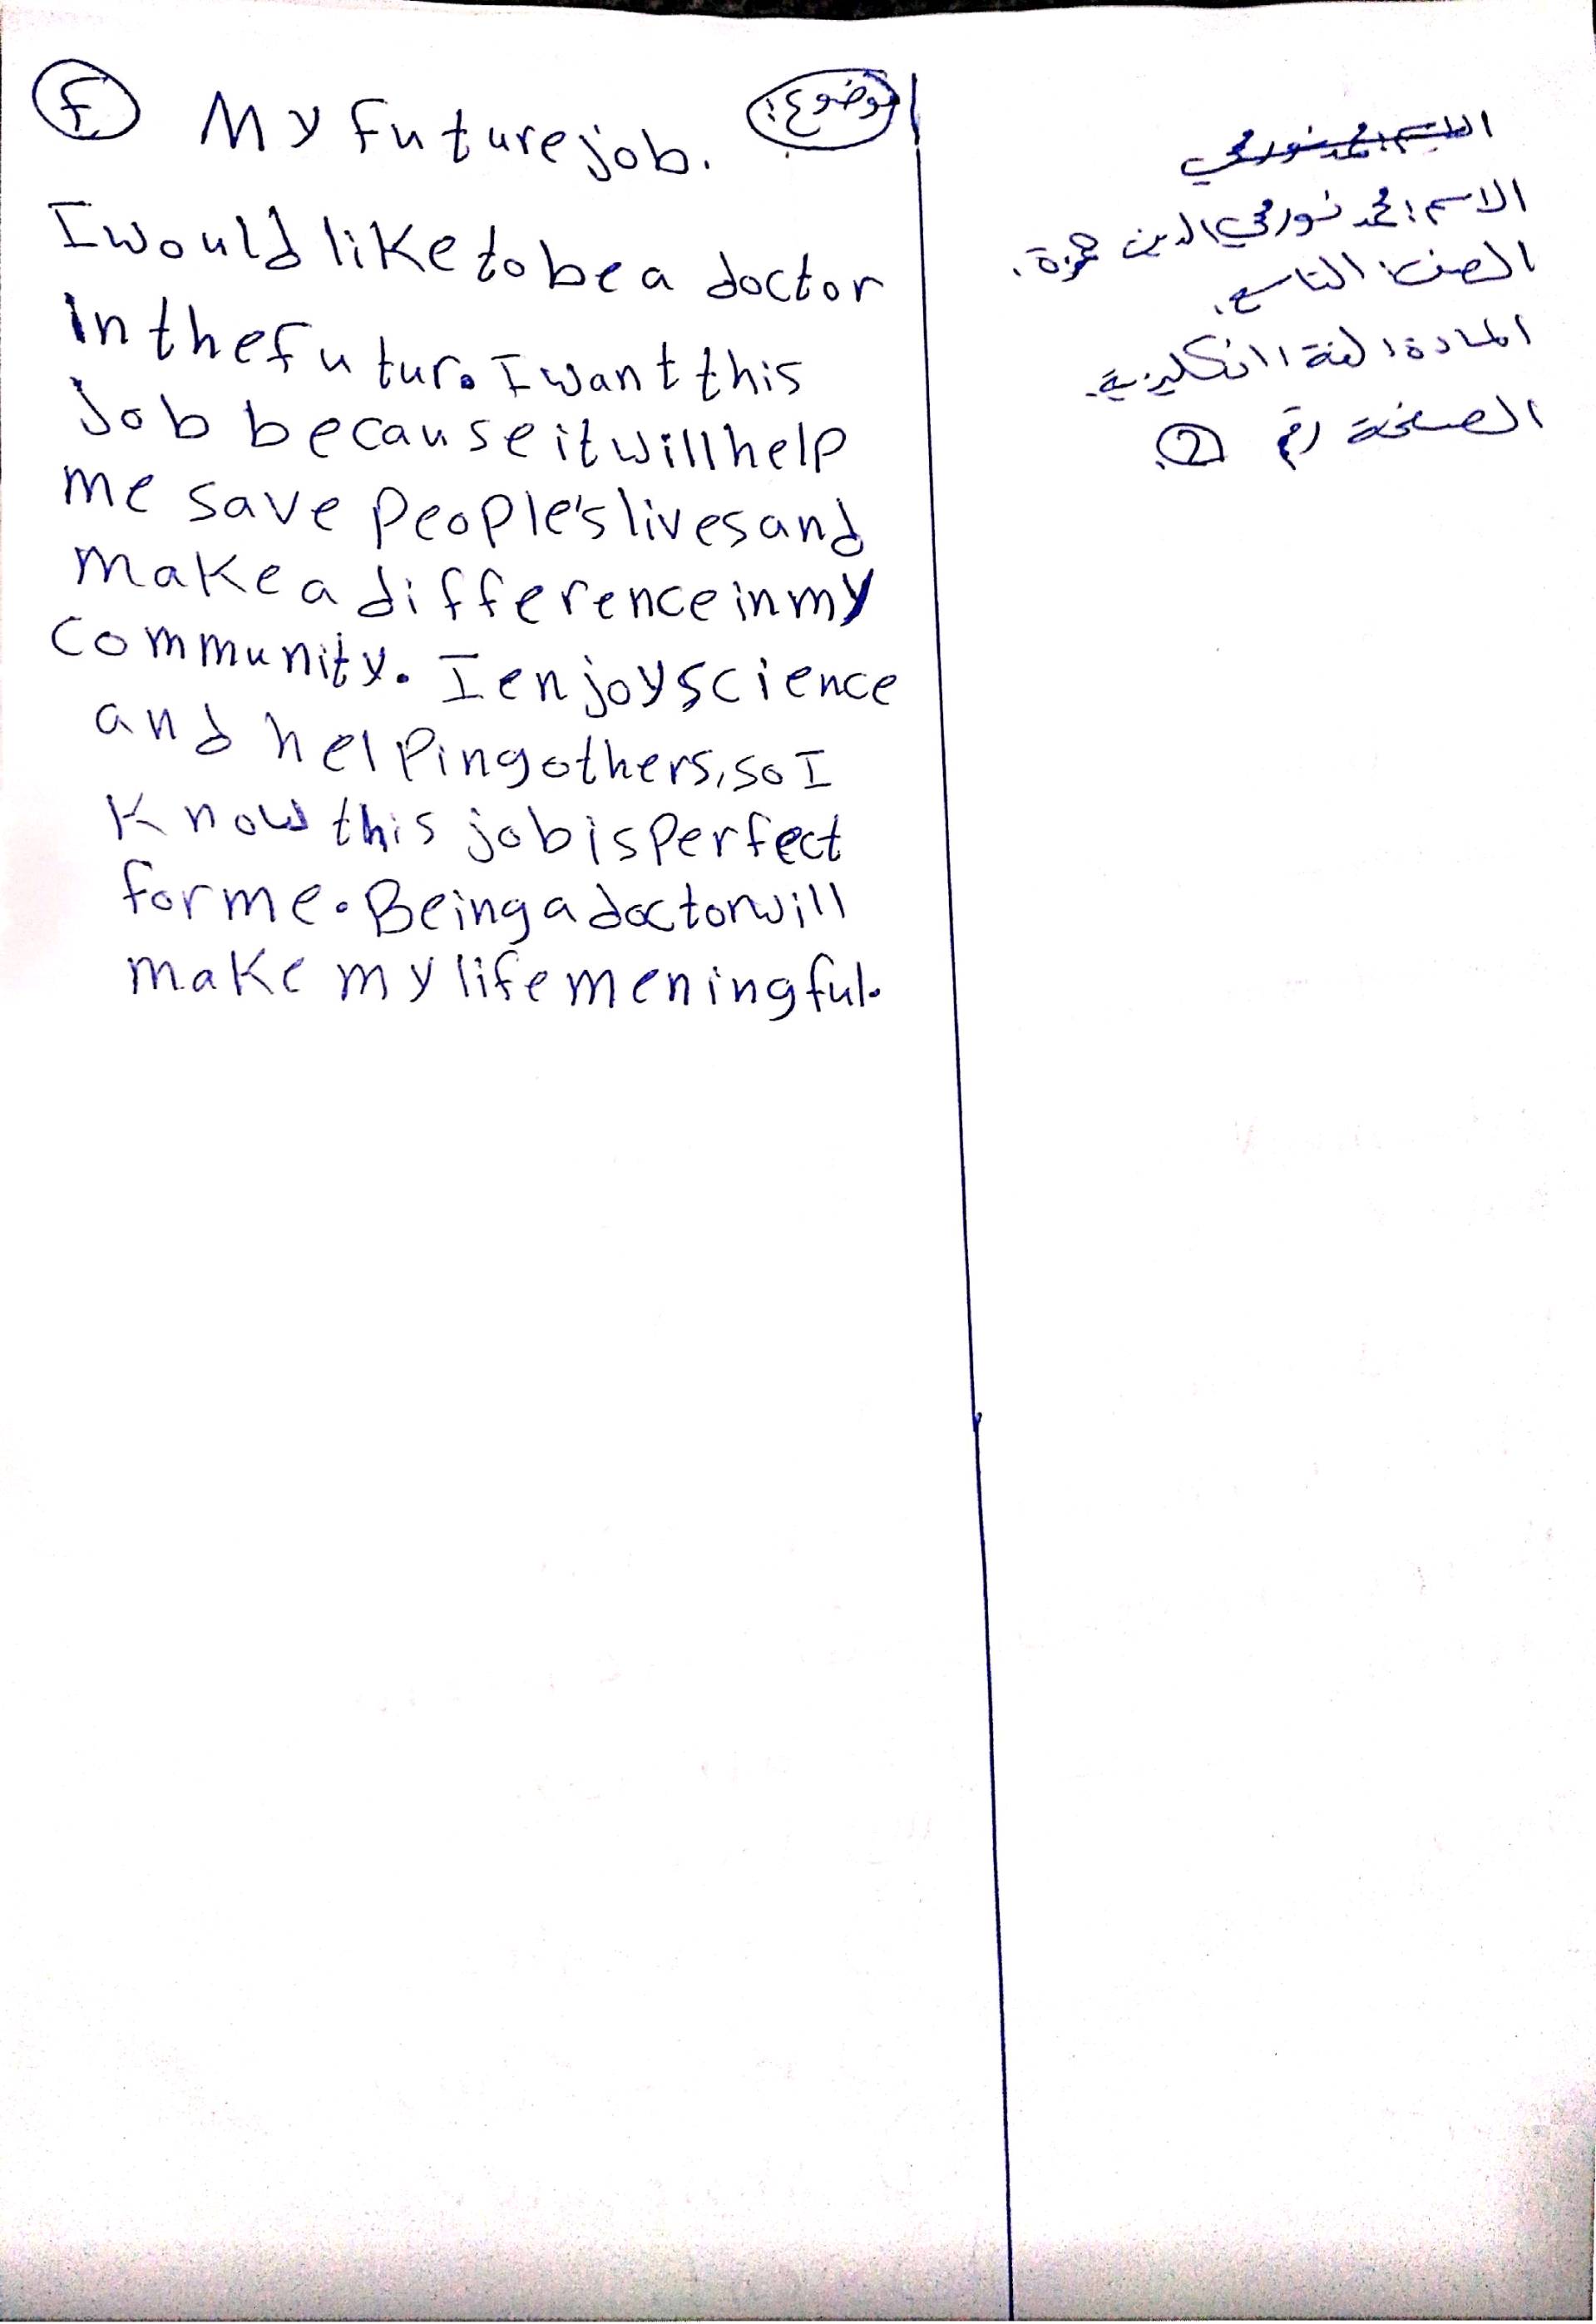 f موضوع:
My future job.
I would like to be a doctor
in the futur. I want this
Job because it will help
me save people's lives and
make a difference in my
community. I enjoy science
and helping others, so I
know this job is perfect
for me. Being a doctor will
make my life meningful.
الاسم: محمد نور محي
الاسم: محمد نور محي الدين حمزة.
الصف: التاسع.
المادة: لغة انكليزية.
الصفحة رقم 2.